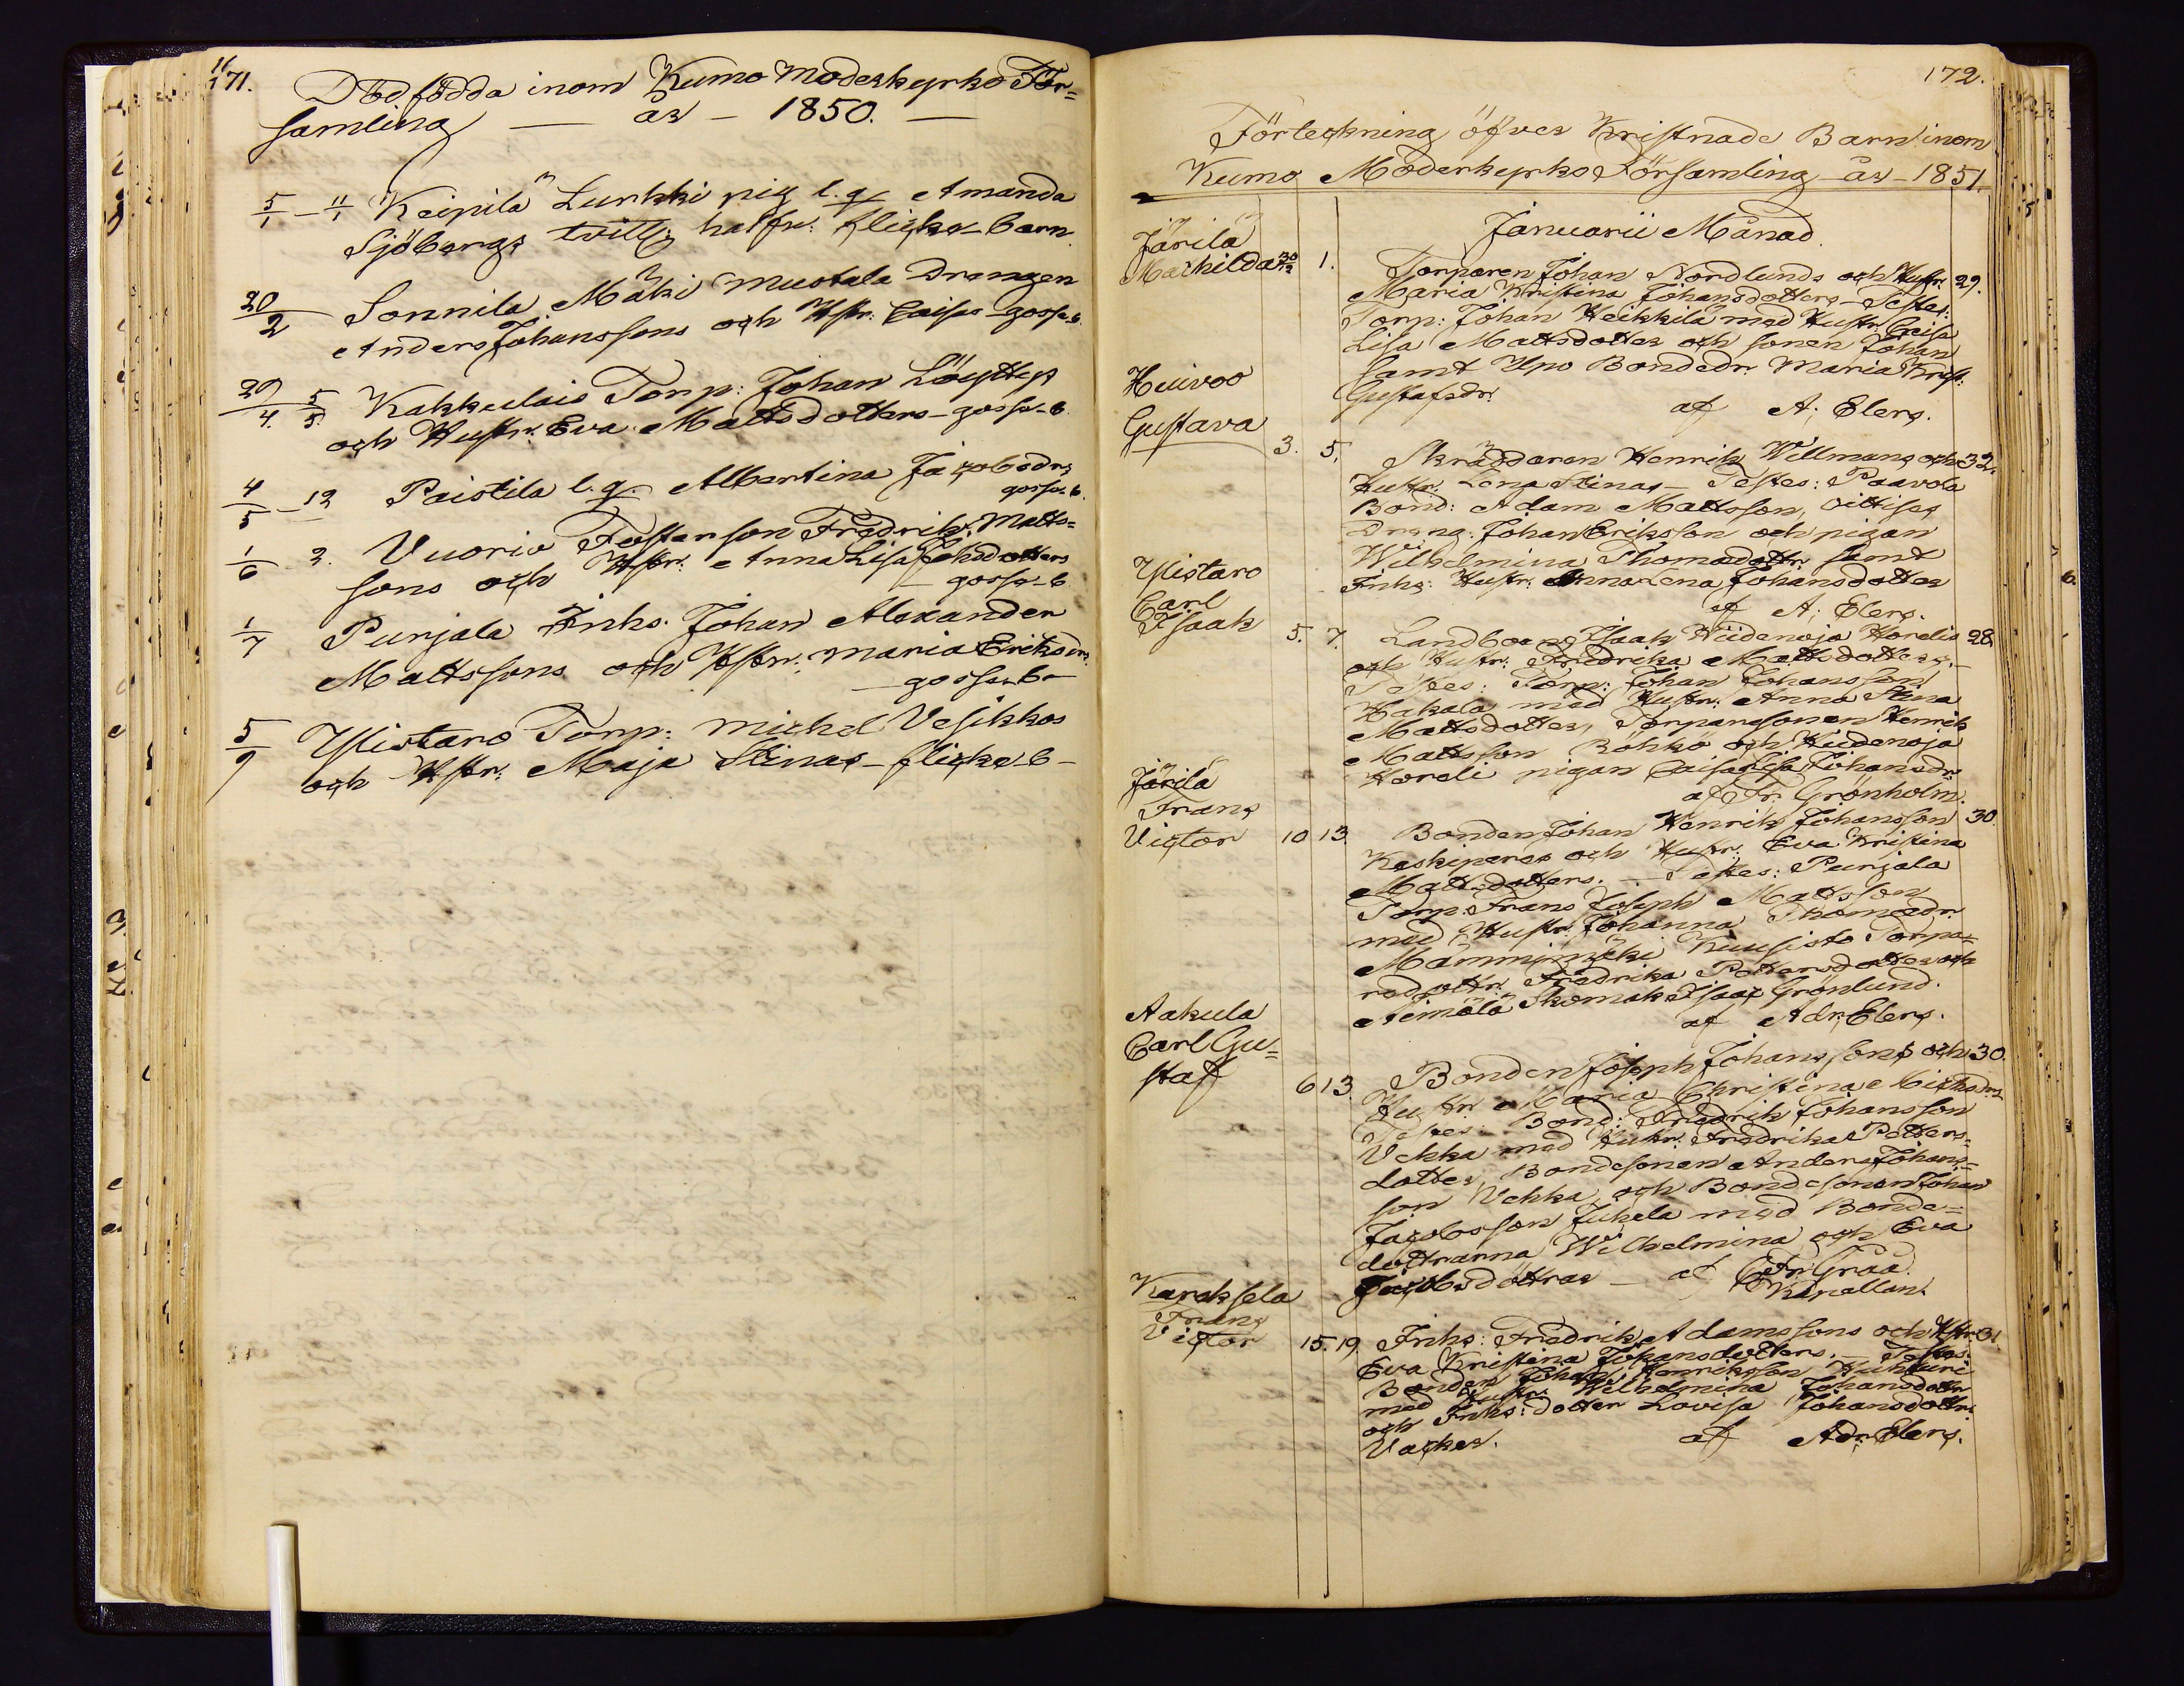 171.
Dödfödda inom Kumo Moderkyrko För=
samling — år — 1850. —
5/1 – 11/1 Keipilä Lurkki pig l. q. Amanda
Sjöbergs tvill: halfn: flicko-barn
20/2 Sonnila Mäki Mustala Drengen
Anders Johanssons och Hstr: Caisas – gosse-b.
29/4. 5/5. Kakkulais Torp: Johan Löyttys
och Hustr: Eva Mattsdotters – gosse-b.
4/5 – 12 Paistila l. q. Albertina Jacobsdrs
gosse-b.
1/6 2. Vuorio Fosterson Fredrik Matts=
sons och Hstr: Anna Lisa Johsdotters
– gosse-b
1/7 Purjala Inhs. Johan Alexander
Mattssons och Hstr: Maria Eriksdrs.
– gosse-b –
5/9 Ylistaro Torp: Michel Vesikkos
och Hstr: Maja Stinas – flicke-b –
172.
Förteckning öfver Kristnade Barn inom
Kumo Moderkyrko Församling år 1851.
Januarii Månad.
Järilä
Mathilda 30/12 1. Torparen Johan Nordlunds och Hustr: 29.
Maria Kristina Johansdotters – Testes:
Torp: Johan Heikkilä med Hustr: Caisa
Lisa Mattsdotter och sonen Johan
samt Ypo Bondedr. Maria Krist:
Gustafsdr. af A. Elers.
Huivoo
Gustava 3. 5. Skräddaren Henrik Willmans och 32.
Hustr: Lena Stinas – Testes: Paavola
Bond: Adam Mattsson,
Dräng: Johan Eriksson och pigan
Wilhelmina Thomasdottr: samt
Inhs: Hustr: Anna Lena Johansdotter
af A. Elers.
Ylistaro
Carl
Isaak 5. 7. Landboens Isaak Hiidenoja Horelis 28
och Hustr: Fredrika Mattsdotters. –
Testes: Torp: Johan Johansson
Hakala med Hustr: Anna Stina
Mattsdotter, Torparesonen Henrik
Mattsson Böhkö och Hiidenoja
Horeli pigan Caisa Lisa Johansdr.
af Fr. Grönholm.
Järilä
Frans
Victor 10 13. Bonden Johan Henrik Johansson 30.
Keskiperes och Hustr: Eva Kristina
Mattsdotters. – Testes: Purjala
Torp: Frans Joseph Mattsson
med Hustr: Johanna Thomasdr.
Mammimäki Kuusisto Torpa=
redottr: Fredrika Pettersdotter och
Aimälä Skomak: Isaac Grönlund.
af Adr. Elers.
Aakula
Carl Gu=
staf 6 13. Bonden Joseph Johanssons och 30.
Hustr: Maria Christina Michsdrs
Testes: Bond: Fredrik Johansson
Uckka med Hustr: Fredrika Petters=
dotter, Bondesonen Anders Johans=
son Uckka, och Bondesonen Johan
Jacobsson Juhela med Bonde=
döttrarna Wilhelmina och Eva
Jacobsdöttrar – af C. Fr. Graa.
Kapellan.
Karhksela
Frans
Victor 15. 19 Inhs: Fredrik Adamssons och Hstr: 31.
Eva Kristina Johansdotters. – Testes:
Bonden Johan Henriksson Huhkuri
med Hustr: Wilhelmina Johansdottr
och Inhs: dotter Lovisa Johansdottr.
Vacker. af Adr. Elers.